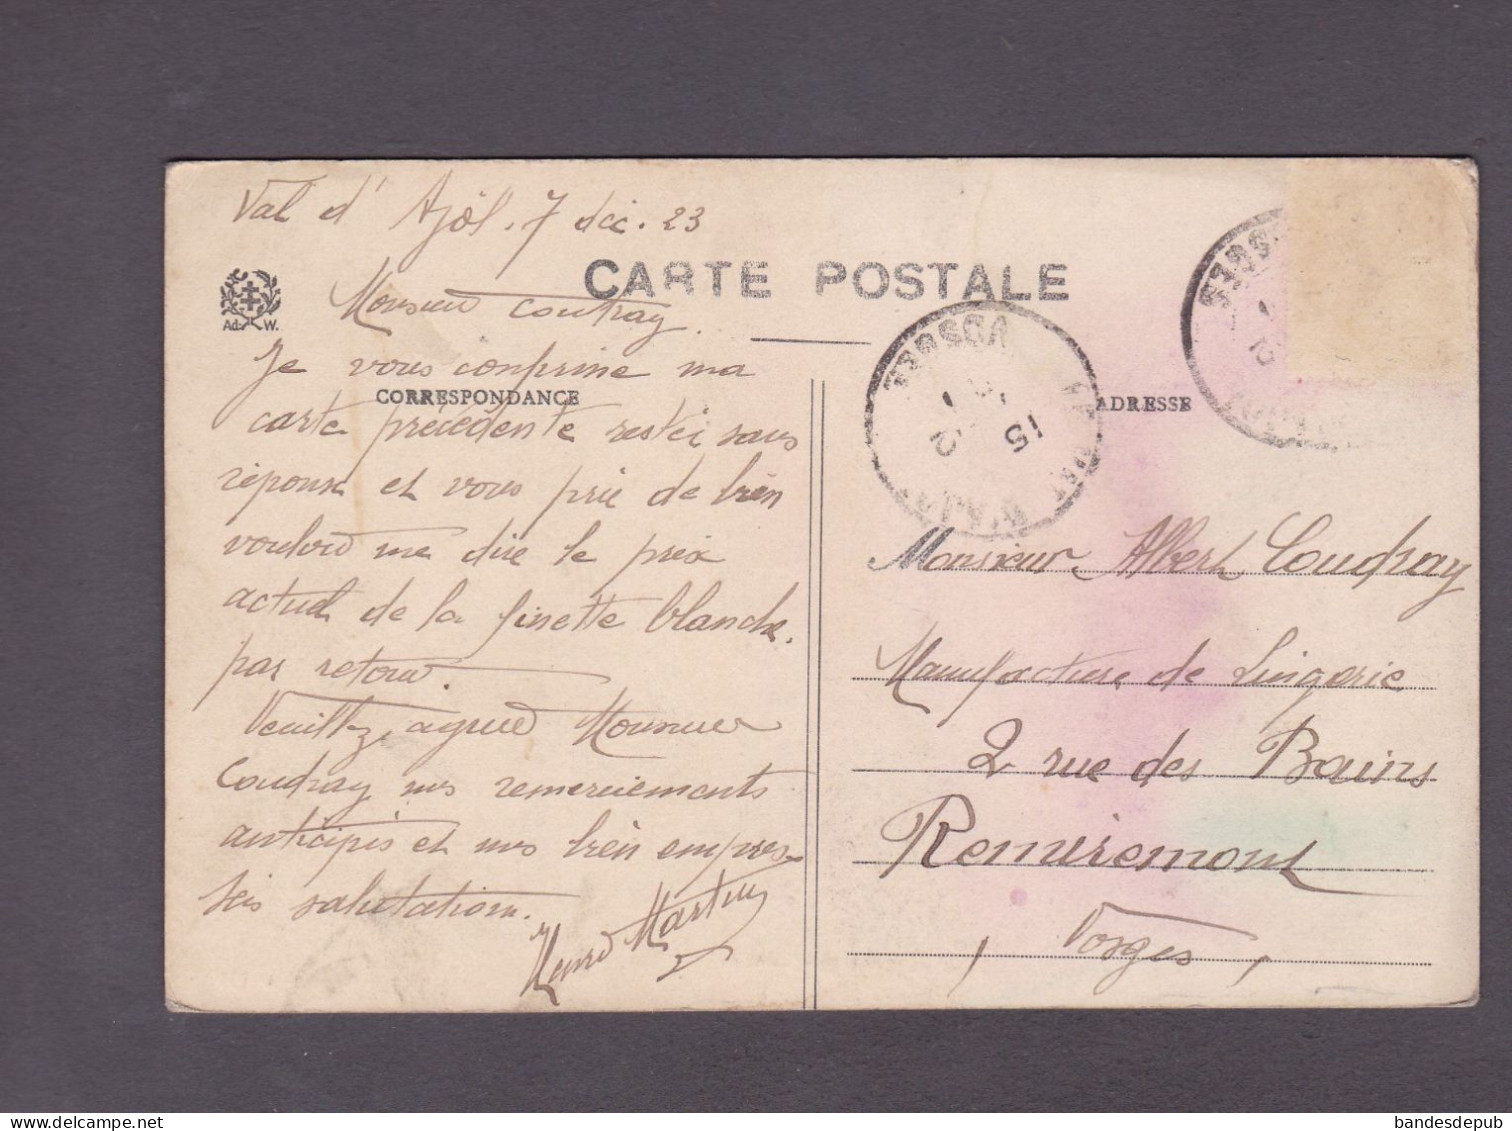 Val d'Ajol. 7 déc. 23
CARTE POSTALE
Ad. W.
Monsieur Coudray.
Je vous confirme ma
CORRESPONDANCE
carte précédente restée sans
réponse et vous prie de bien
vouloir me dire le prix
actuel de la finette blanche.
par retour.
Veuillez agréer Monsieur
Coudray mes remerciements
anticipés et mes bien empres-
sées salutations.
Henri Martin
ADRESSE
VOSGES
15
12
VOSGES
Monsieur Albert Coudray
Manufacture de Lingerie
2 rue des Bains
Remiremont
, Vosges,
bandesdepub